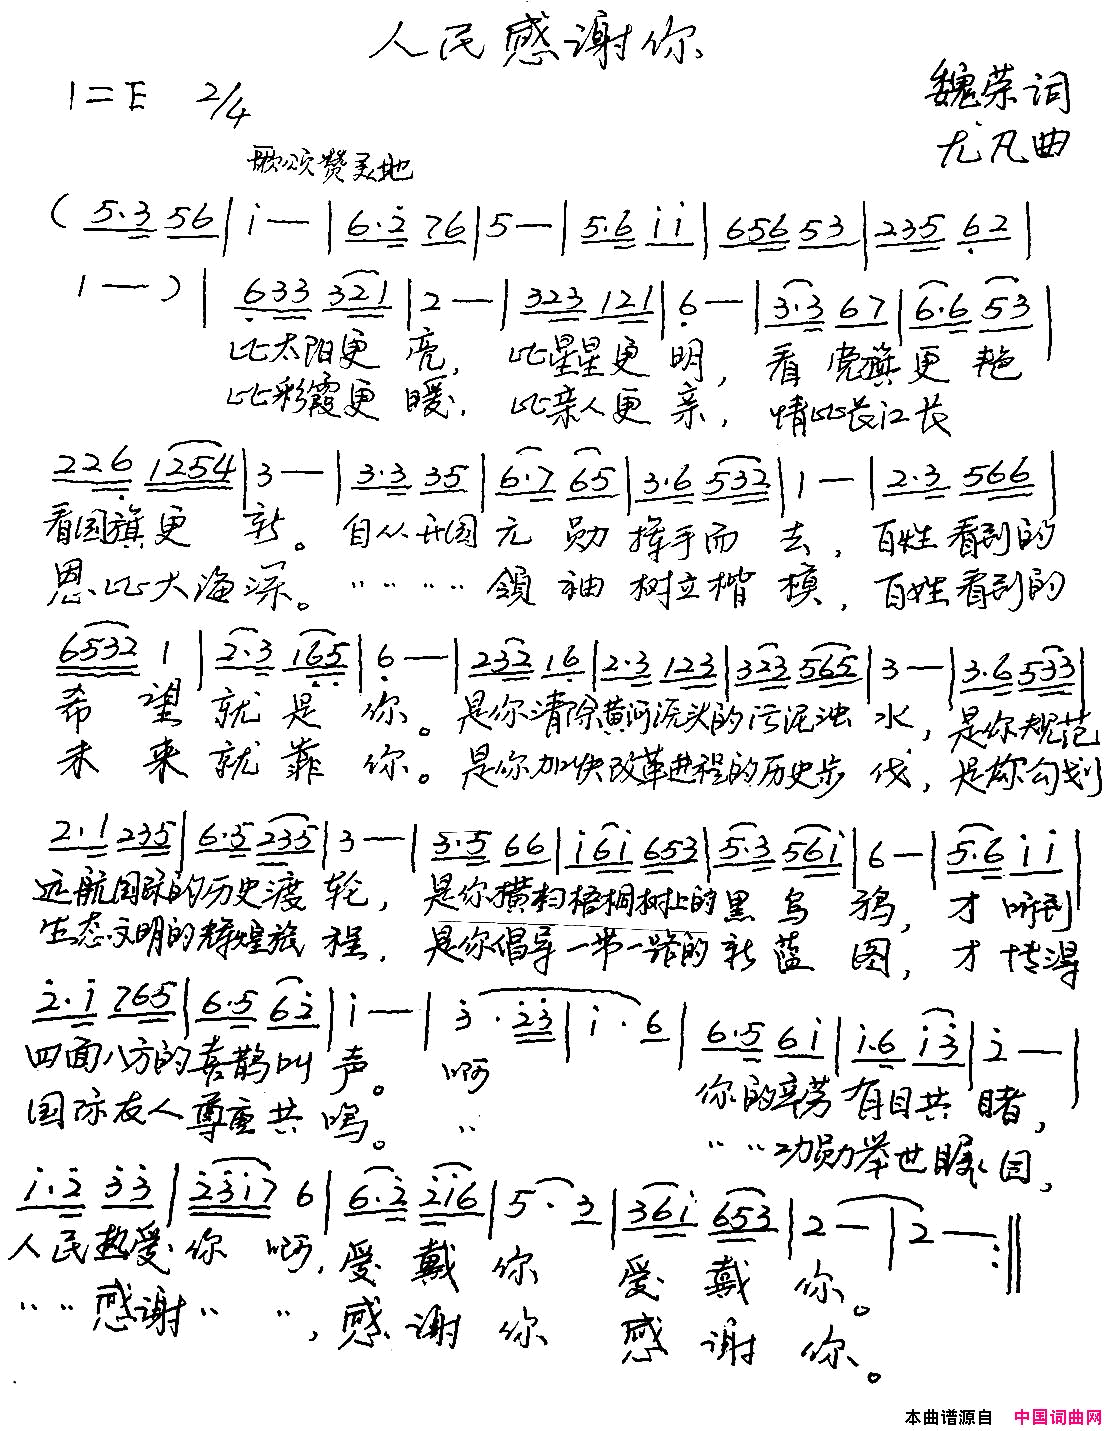 人民感谢你
1=E 2/4
魏荣词
尤凡曲
歌颂赞美地
( 5·3 56 | i — | 6·2 76 | 5 — | 5·6 i i | 656 53 | 235 62 |
1 — ) | 633 321 | 2 — | 323 121 | 6 — | 3·3 67 | 6·6 53 |
比太阳更亮, 比星星更明, 看党旗更艳
比彩霞更暖, 比亲人更亲, 情比长江长
226 1254 | 3 — | 3·3 35 | 6·7 65 | 3·6 532 | 1 — | 2·3 566 |
看国旗更新。自从开国元勋挥手而去, 百姓看到的
恩比大海深。〃〃〃〃領袖树立楷模, 百姓看到的
6532 1 | 2·3 165 | 6 — | 232 16 | 2·3 123 | 323 565 | 3 — | 3·6 533 |
希望就是你。是你清除黄河流头的污泥浊水, 是你规范
未来就靠你。是你加快改革进程的历史步伐, 是你勾划
2·1 235 | 6·5 235 | 3 — | 3·5 66 | i6i 653 | 5·3 56i | 6 — | 5·6 i i |
远航国际的历史渡轮, 是你横扫梧桐树上的黑乌鸦, 才听到
生态文明的辉煌旅程, 是你倡导一带一路的新蓝图, 才博得
2·i 765 | 6·5 62 | i — | 3·23 | i·6 | 6·5 6i | i·6 i3 | 2 — |
四面八方的喜鹊叫声。啊 你的辛劳有目共睹,
国际友人尊重共鸣。〃 〃〃功勋举世瞩目,
i·2 33 | 23i7 6 | 6·2 2i6 | 5·3 | 36i 653 | 2 — | 2 — :‖
人民热爱你啊, 爱戴你 爱戴你。
〃〃感谢〃〃, 感谢你 感谢你。
本曲谱源自 中国词曲网